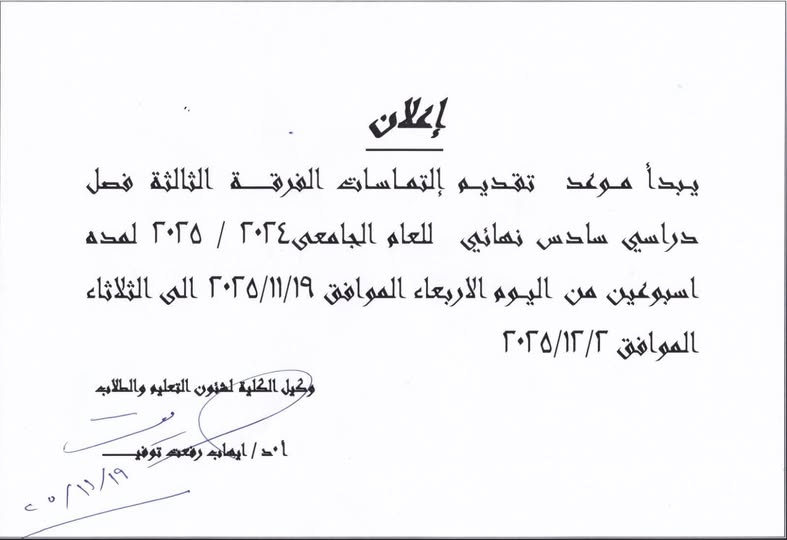 إعلان
يبدأ موعد تقديم إلتماسات الفرقة الثالثة فصل
دراسي سادس نهائي للعام الجامعى٢٠٢٤ / ٢٠٢٥ لمده
اسبوعين من اليوم الاربعاء الموافق ٢٠٢٥/١١/١٩ الى الثلاثاء
الموافق ٢٠٢٥/١٢/٢
وكيل الكلية لشئون التعليم والطلاب
أ.د/ ايهاب رفعت توفيـــــ
٢٠٥/١١/١٩